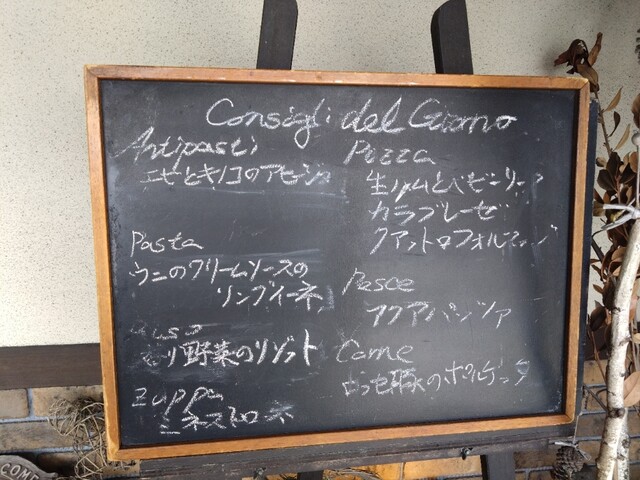 Consigli del Giorno
Antipasti
エビとキノコのアヒージョ
Pasta
ウニのクリームソースの
リングイーネ
野菜のリゾット
Zuppa
ミネストローネ
Pizza
生ハムとベビーリーフ
カラブレーゼ
クアットロフォルマッジ
Pesce
アクアパッツァ
Carne
豚のポルケッタ
COME